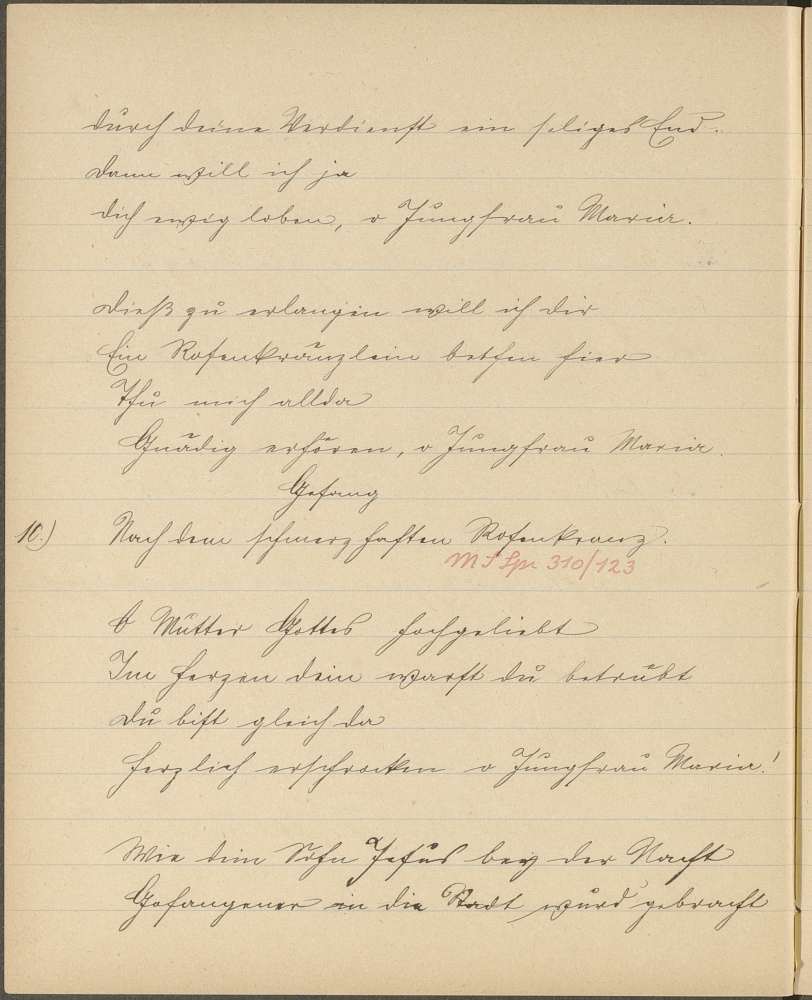 durch deine Verdienst ein seliges End.
Dann will ich ja
dich ewig loben, o Jungfrau Maria.
Dieß zu erlangen will ich dir
Ein Rosenkränzlein bethen hier
Thu mich allda
Gnädig erhören, o Jungfrau Maria.
Gesang
10.) Nach dem schmerzhaften Rosenkranz.
310/123
O Mutter Gottes hochgeliebt
Im Herzen dein warst du betrübt
Du bist gleich da
Herzlich erschrocken o Jungfrau Maria!
Wie dein Sohn Jesus bey der Nacht
Gefangener in die Stadt wurd gebracht